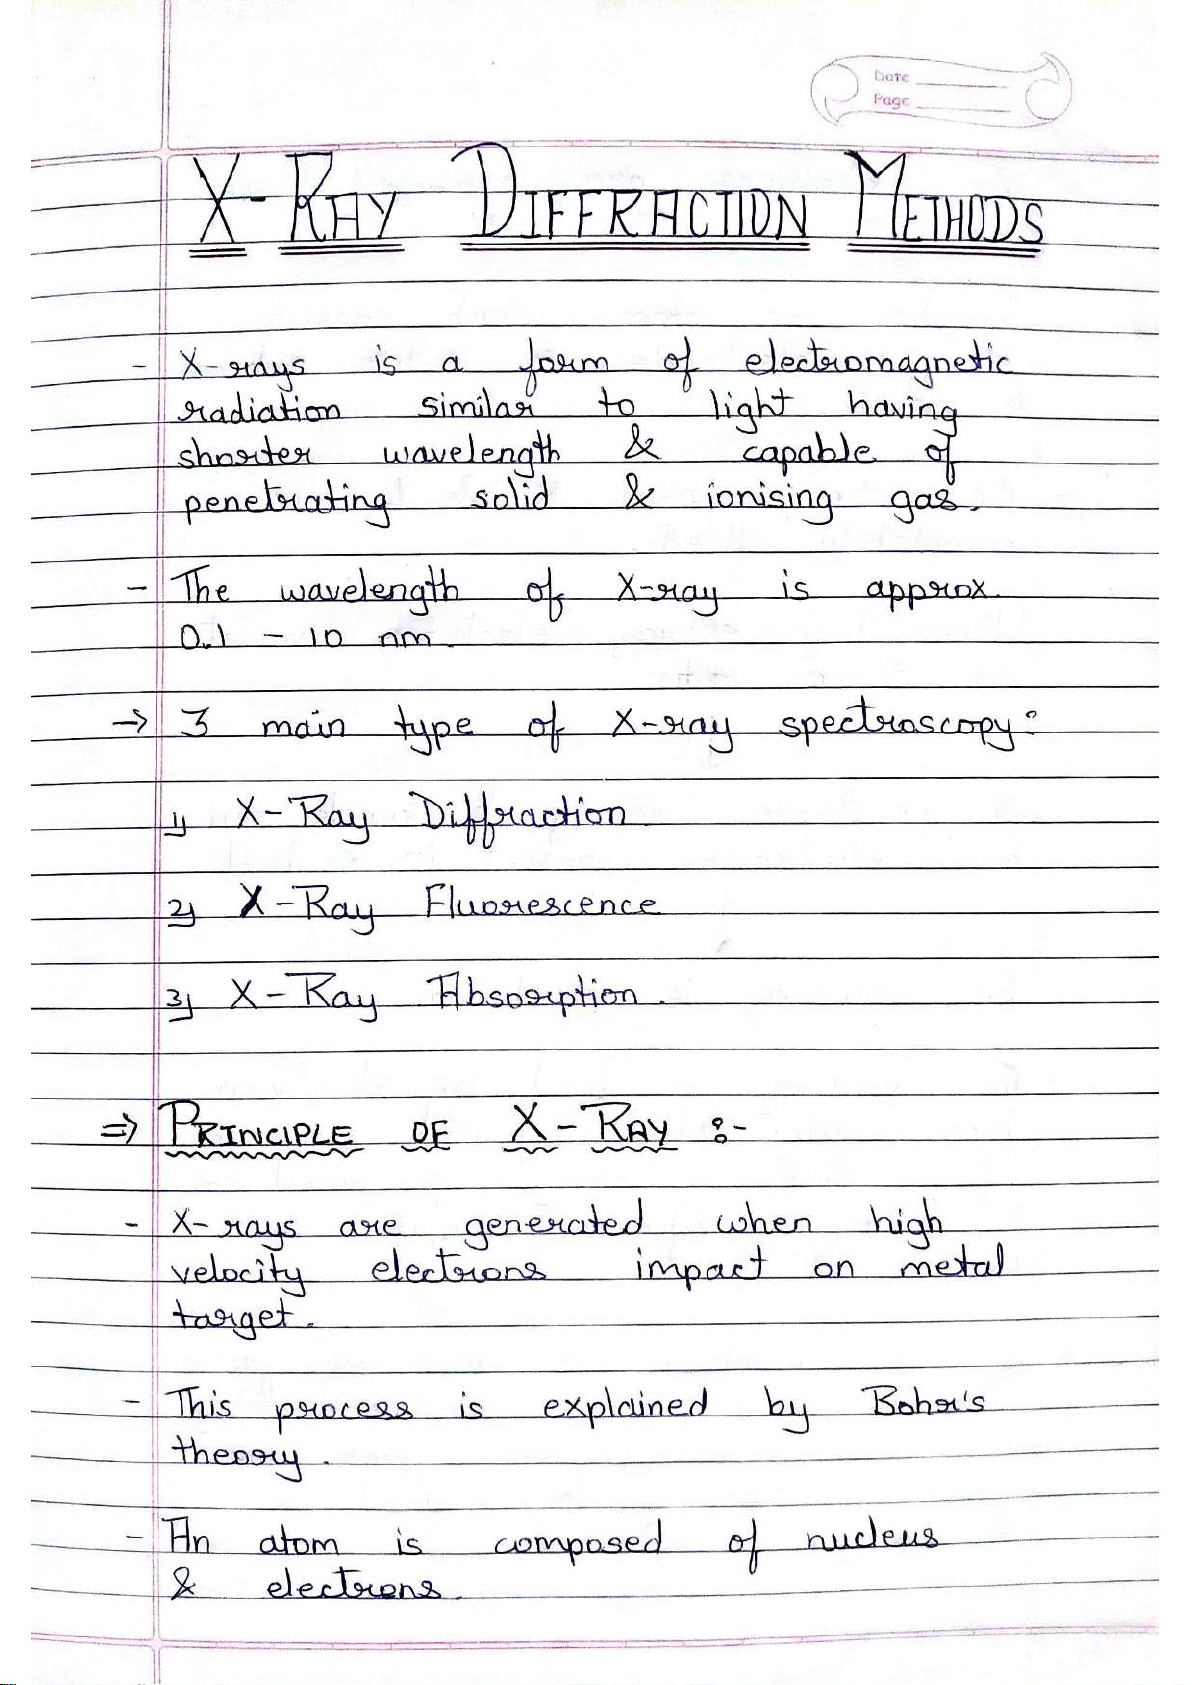 Date
Page
X-RAY DIFFRACTION METHODS
- X-rays is a form of electromagnetic
radiation similar to light having
shorter wavelength & capable of
penetrating solid & ionising gas.
- The wavelength of X-ray is approx.
0.1 - 10 nm.
→ 3 main type of X-ray spectroscopy:
1) X-Ray Diffraction
2) X-Ray Fluorescence
3) X-Ray Absorption.
⇒ PRINCIPLE OF X-RAY :-
- X-rays are generated when high
velocity electrons impact on metal
target.
- This process is explained by Bohr's
theory.
- An atom is composed of nucleus
& electrons.